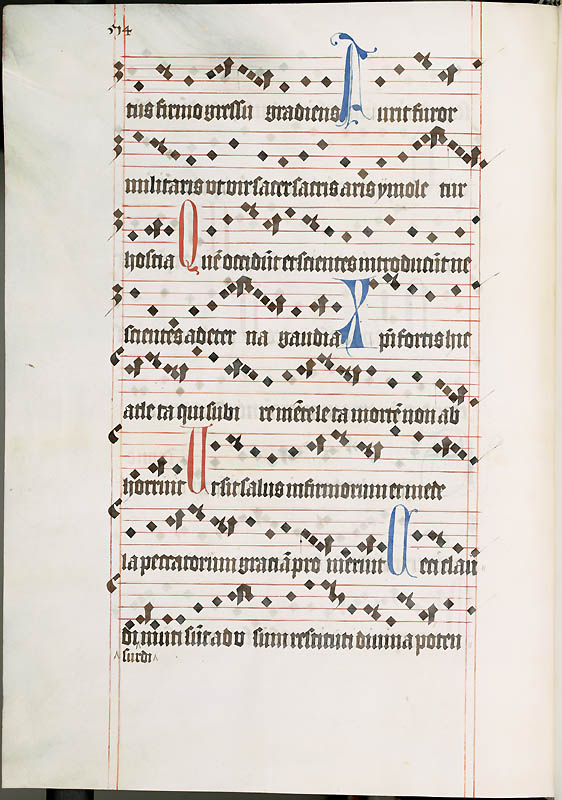 514
tus firmo gressu gradiens Aurit furor
militaris vt vir sacer sacris aris ymole tur
hostia Quē occidūt et scientes introducūt ne
scientes ad eter na gaudia Xp̄i fortis hic
atle ta qui subi re mēte le ta mortē non ab
horruit Ut sit salus infirmorum et mede
la peccatorum gratiā pro meruit Ceci clau
di muti sūt ad v sum restituti diuina poten
surdi